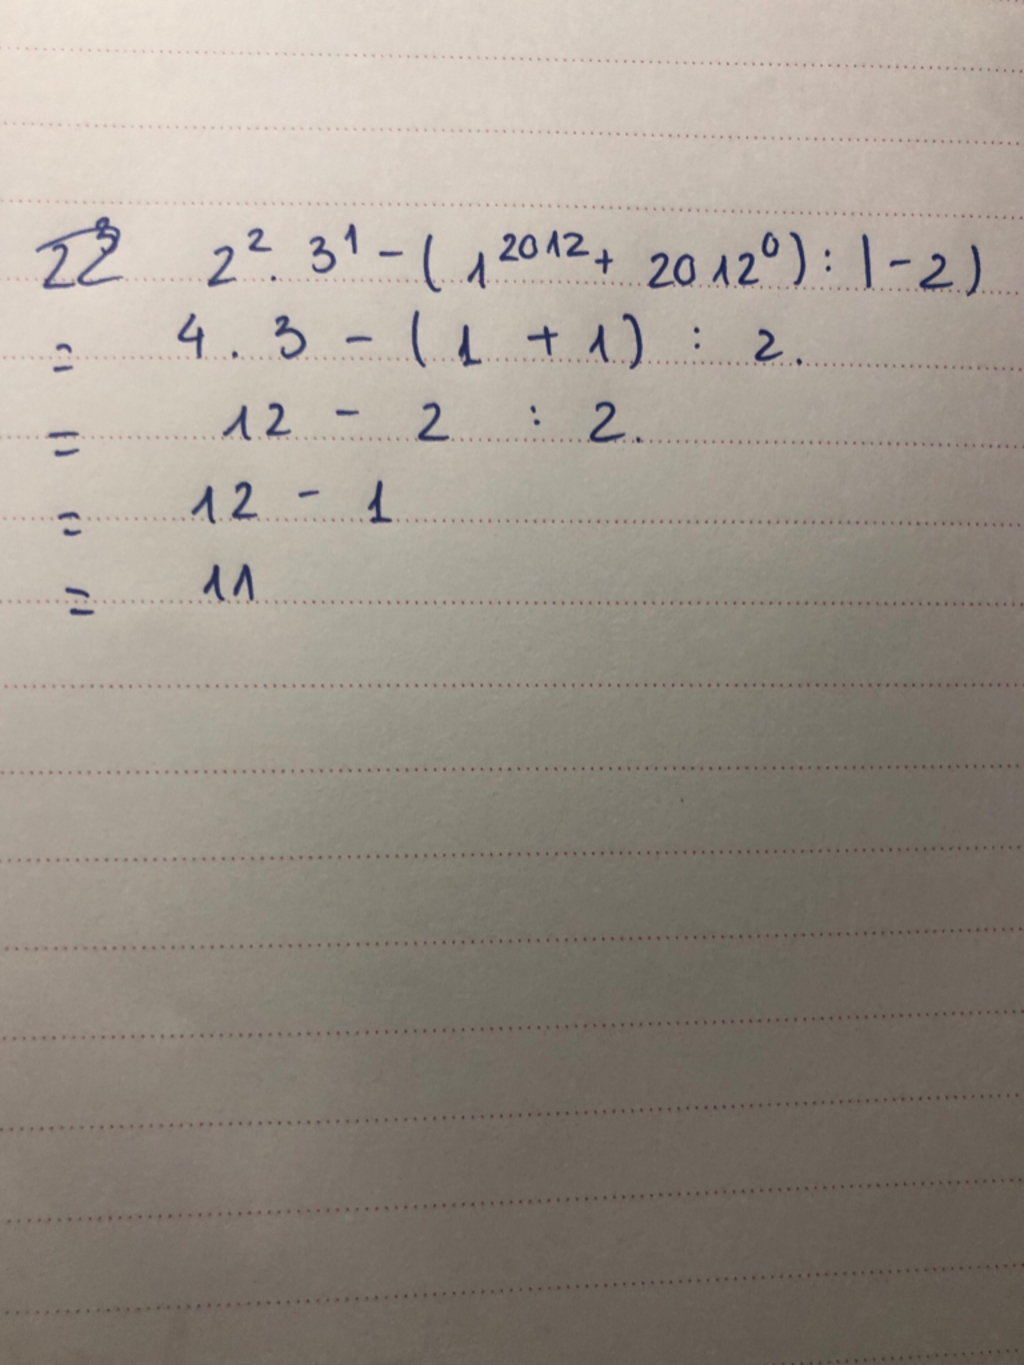 2² . 3¹ - ( 1²⁰¹² + 2012⁰ ) : |-2)
= 4 . 3 - ( 1 + 1 ) : 2.
= 12 - 2 : 2.
= 12 - 1
= 11